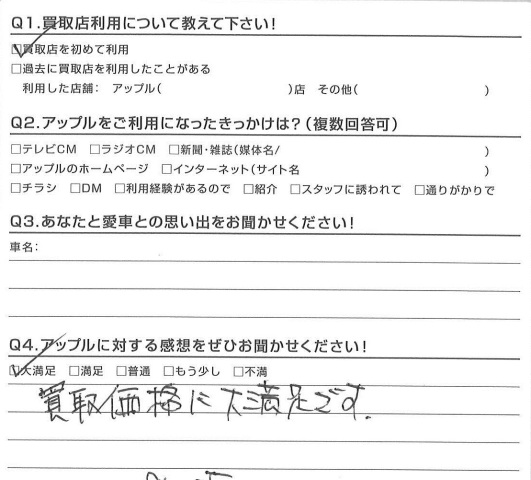 Q1.買取店利用について教えて下さい!
☑買取店を初めて利用
□過去に買取店を利用したことがある
利用した店舗: アップル( )店 その他( )
Q2.アップルをご利用になったきっかけは?(複数回答可)
□テレビCM □ラジオCM □新聞・雑誌(媒体名/ )
□アップルのホームページ □インターネット(サイト名 )
□チラシ □DM □利用経験があるので □紹介 □スタッフに誘われて □通りがかりで
Q3.あなたと愛車との思い出をお聞かせください!
車名:
Q4.アップルに対する感想をぜひお聞かせください!
☑大満足 □満足 □普通 □もう少し □不満
買取価格に大満足です.